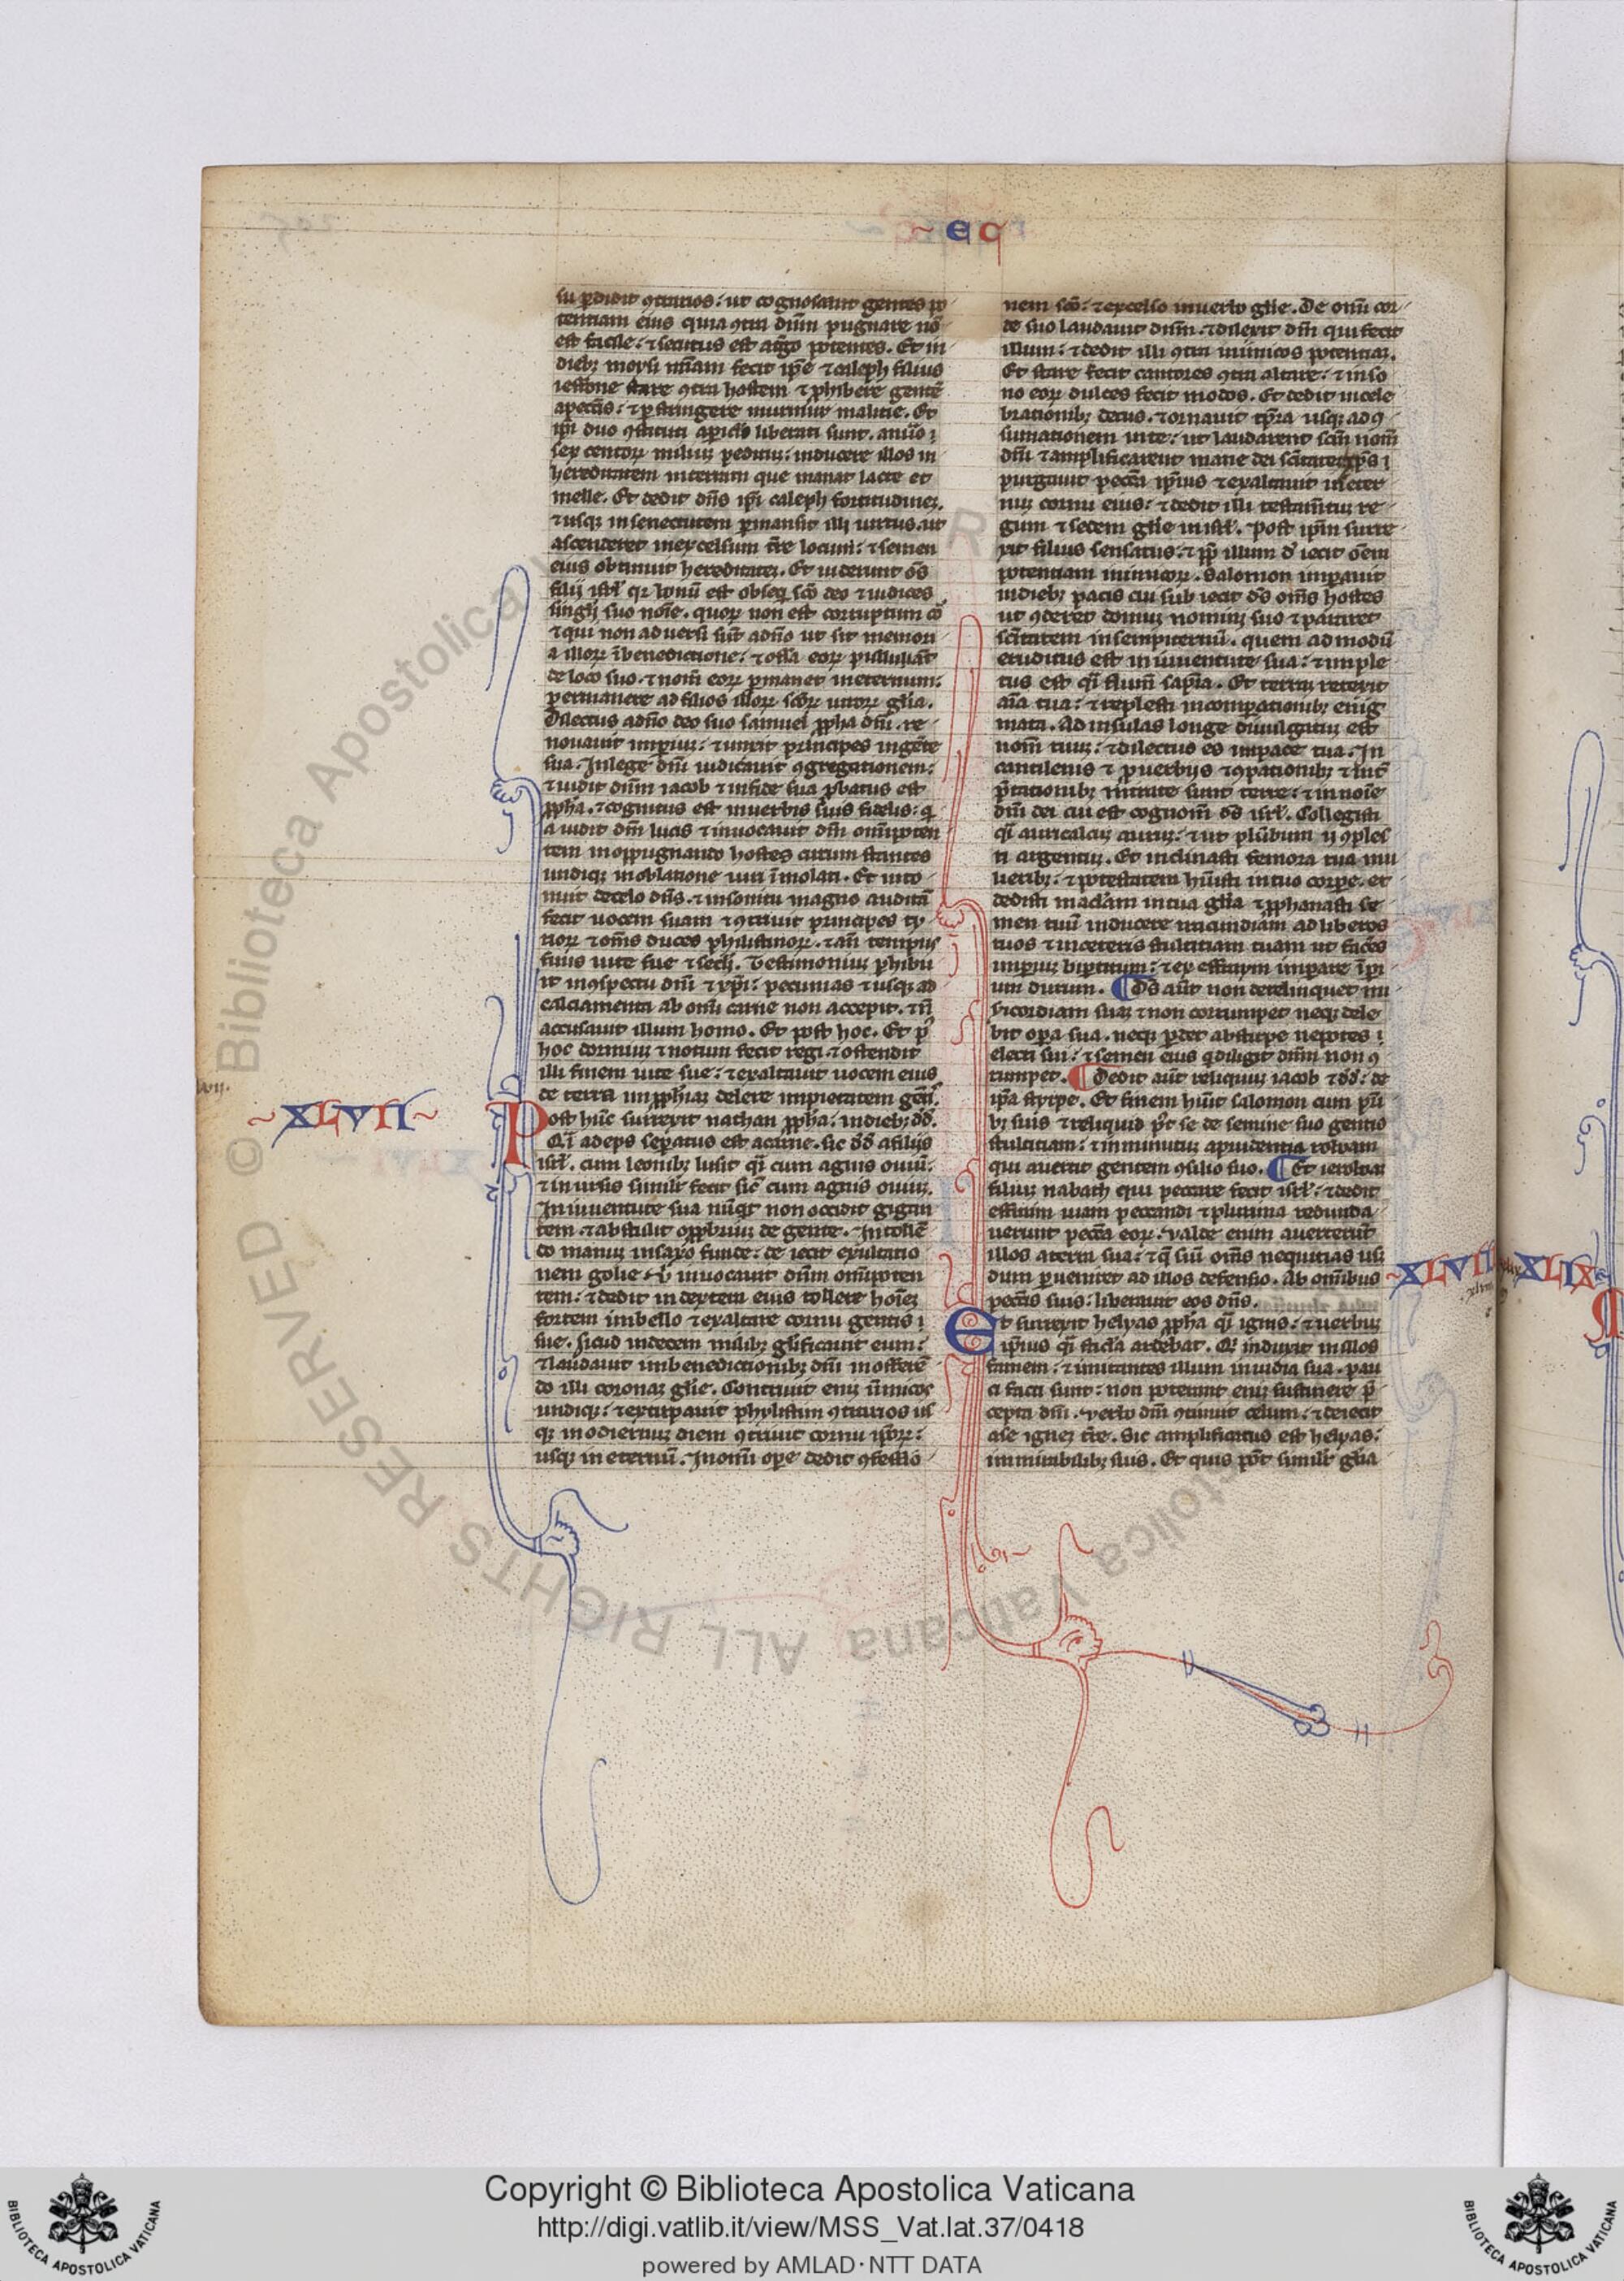 ~ e c
su perdidit 9trarios: ut cognoscant gentes po
tentiam eius quia 9tra dnm pugnare no
est facile: ⁊ secutus est a tergo potentes. Et in
dieb; moysi miam fecit ipse ⁊ caleph filius
ieffone stare 9tra hostem ⁊ phibere gente
a pccis: ⁊ pfringere murmur malitie. Et
ipi duo 9stituti a piclo liberati sunt. a nuo i
sex centorꝝ miliuꝫ peditum: inducere illos in
hereditatem in terram que manat lacte et
melle. Et dedit dns ipi caleph fortitudineꝫ.
⁊ usqꝫ in senectutem pmansit illi uirtus. ut
ascenderet in excelsum tre locum: ⁊ semen
eius obtinuit hereditateꝫ. Et uiderunt os
filij isrl qr bonu est obseq sco deo ⁊ iudices
singli suo noie. quorꝝ non est corruptum co
⁊ qui non aduersi sut a dno ut sit memori
a illorꝝ i benedictione: ⁊ ossa eorꝝ pullulat
de loco suo. ⁊ nom eorꝝ pmanet in eternum:
permanere ad filios illorꝝ scorꝝ uirorꝝ glia.
Dilectus a dno deo suo samuel ppha dni. re
nouauit imperiuꝫ: ⁊ unxit principes in gete
sua. In lege dni iudicauit 9gregationem:
⁊ uidit dnm iacob ⁊ in fide sua pbatus est
ppha. ⁊ cognitus est in uerbis suis fidelis: q
a uidit dm lucis ⁊ inuocauit dm omipoten
tem in oppugnando hostes circum stantes
undiqꝫ in oblatione uiri imolati. Et into
nuit de celo dns. ⁊ in sonitu magno audita
fecit uocem suam ⁊ 9triuit principes ty
riorꝝ ⁊ oms duces philistinorꝝ. ⁊ an tempus
finis uite sue ⁊ secli. Testimoniuꝫ phibu
it in 9spectu dni ⁊ xpi: pecunias ⁊ usqꝫ ad
calciamenta ab omi carne non accepit. ⁊ n
accusauit illum homo. Et post hoc. Et p
hoc dormiuit ⁊ notum fecit regi. ⁊ ostendit
illi finem uite sue: ⁊ exaltauit uocem eius
de terra in pphiaꝫ delere impietatem gen.
~XLVII~
Post huc surrexit nathan ppha: in dieb; dd.
Qi adeps separatus est a carne. sic dd a filijs
isrl. cum leonib; lusit qi cum agnis ouiu.
⁊ in ursis similr fecit sic cum agnis ouiuꝫ.
In iuuentute sua nuqd non occidit gigan
tem. ⁊ abstulit opprbriuꝫ de gente. In tolle
do manuꝫ in saxo funde: de iecit exultatio
nem golie. N inuocauit dnm omipoten
tem: ⁊ dedit in dextera eius tollere hoieꝫ
fortem in bello ⁊ exaltare cornu gentis i
sue. Sicud in decem milib; glificauit eum:
⁊ laudauit um benedictionib; dni in offere
do illi coronaꝫ glie. Contriuit eniꝫ inimicos
undiqꝫ: ⁊ extirpauit phylistim 9trarios us
qꝫ in odiernuꝫ diem 9triuit cornu iporꝝ:
usqꝫ in eternu. In omi ope dedit 9fessio
nem sco: ⁊ excelso in uerbo glie. De omi cor
de suo laudauit dnm: ⁊ dilexit dm qui fecit
illum: ⁊ dedit illi 9tra inimicos potentiaꝫ.
Et stare fecit cantores 9tra altare: ⁊ in so
no eorꝝ dulces fecit modos. Et dedit in cele
brationib; decus. ⁊ ornauit tpra usqꝫ ad 9
sumationem uite: ut laudarent scm nom
dni ⁊ amplificarent mane dei scitate xps i
purgauit pecca ipius ⁊ exaltauit in eter
nuꝫ cornu eius: ⁊ dedit illi testamtuꝫ re
gum ⁊ sedem glie in isrl. Post ipm surre
xit filius sensatus: ⁊ pp illum d iecit oem
potentiam inimicorꝝ. Salomon impauit
in dieb; pacis cui sub iecit ds oms hostes
ut 9deret domuꝫ nomini suo ⁊ pararet
scitatem in sempiternu. quem ad modu
eruditus est in iuuentute sua: ⁊ imple
tus est qi flum sapia. Et terraꝫ retexit
aia tua: ⁊ replesti in comparationib; enig
mata. Ad insulas longe diuulgatuꝫ est
nom tuuꝫ: ⁊ dilectus es in pace tua. In
cantilenis ⁊ puerbijs ⁊ 9parationib; ⁊ int
pretationib; mirate sunt terre: ⁊ in noie
dni dei cui est cognom ds isrl. Collegisti
qi auricalcuꝫ auruꝫ: ⁊ ut plubum 9ples
ti argentuꝫ. Et inclinasti femora tua mu
lierib;: ⁊ potestatem huisti in tuo corpe. et
dedisti maclam in tua glia ⁊ pphanasti se
men tuu inducere iracundiam ad liberos
tuos ⁊ in ceteris stultitiam tuam ut faces
imperiuꝫ bipartitum: ⁊ ex effraym impare impi
um durum. ¶ Ds aut non derelinquet mi
sicordiam suaꝫ ⁊ non corrumpet neqꝫ dele
bit opa sua. neqꝫ perdet ab stirpe nepotes i
electi sui: ⁊ semen eius q diligit dnm non 9
rumpet. ¶ Dedit aut reliquiuꝫ iacob ⁊ dd: de
ipa styrpe. Et finem huit salomon cum pri
b; suis ⁊ reliquid pt se de semine suo gentis
stultitiam: ⁊ inminutuꝫ a prudentia roboam
qui auertit gentem 9silio suo. ¶ Et ieroboaꝫ
filiuꝫ nabath qui peccare fecit isrl: ⁊ dedit
effraim uiam peccandi ⁊ plurima redunda
uerunt pecca eorꝝ: ualde enim auerterut
illos a terra sua: ⁊ qsiuit oms nequitias us
dum pueniret ad illos defensio. Ab omibus
peccis suis: liberauit eos dns.
~XLVII
Et surrexit helyas ppha qi ignis: ⁊ uerbuꝫ
ipius qi facla ardebat. Qi induxit in illos
famem: ⁊ imitantes illum inuidia sua. pau
ci facti sunt: non poterant eniꝫ sustinere p
cepta dni. Verbo dni 9tinuit celum: ⁊ deiecit
a se igneꝫ tre. Sic amplificatus est helyas:
in mirabilib; suis. Et quis pot similr glia
XLIX
Copyright © Biblioteca Apostolica Vaticana
http://digi.vatlib.it/view/MSS_Vat.lat.37/0418
powered by AMLAD·NTT DATA
BIBLIOTECA APOSTOLICA VATICANA
BIBLIOTECA APOSTOLICA VATICANA
© Biblioteca Apostolica Vaticana ALL RIGHTS RESERVED